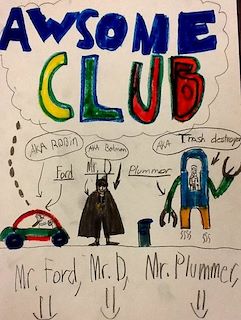 AWSOME
CLUB
AKA ROBIN
AKA Batman
AKA Trash destroyer
Ford
Mr. D
Plummer
Mr. Ford, Mr. D, Mr. Plummer,